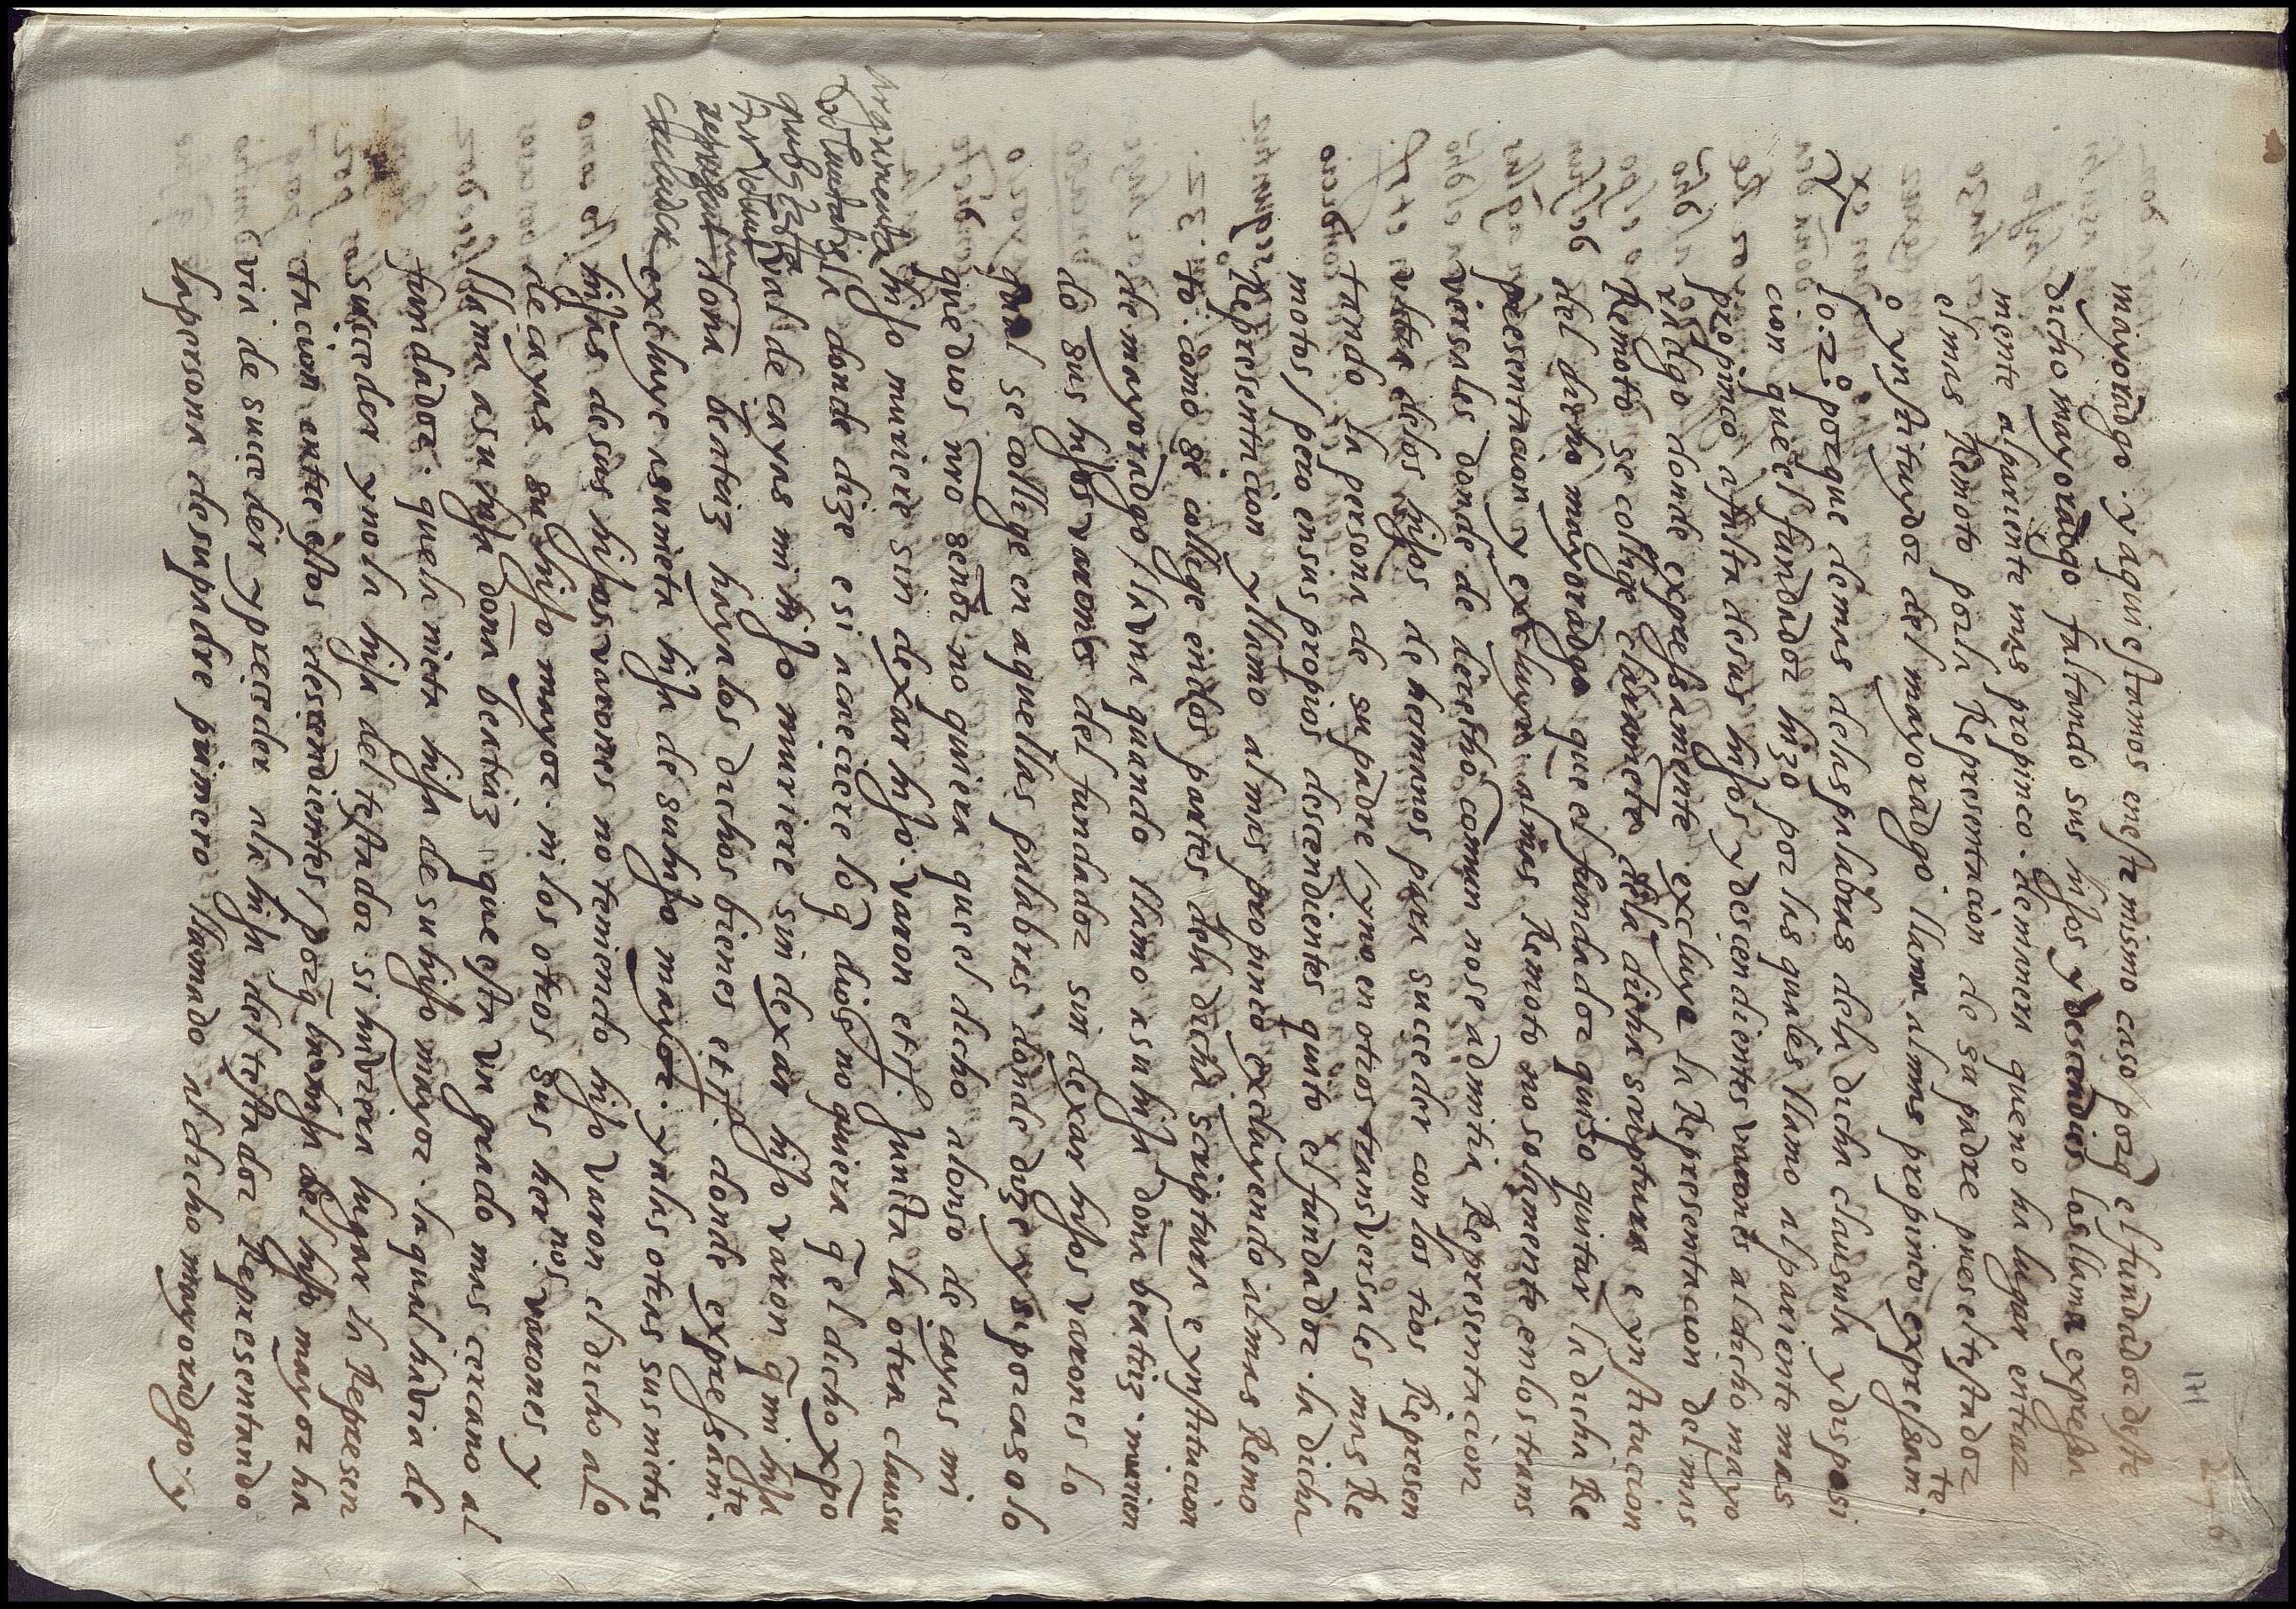 mayoradgo. y aqui estamos en este mismo caso / porq̃ el fundador deste
dicho mayoradgo faltando sus hijos y descendiẽs los llama expressa
mente al pariente mas propinco. demanera que no ha lugar entrar
el mas Remoto por la Representacion de su padre pues el testador
o ynstituydor del mayoradgo. llama al mas propinco expressam.te
Lo. 2.º porque demas delas palabras dela dicha clausula y disposi
cion que el fundador hizo por las quales llamo al pariente mas
propinco a falta de sus hijos y descendientes varones al dicho mayo
radgo donde expressamente excluye la Representacion del mas
Remoto se collige claramẽte dela dicha scriptura e ynstitucion
del dicho mayoradgo que el fundador quiso quitar la dicha Re
pressentacion y excluyr al mas Remoto no solamente en los trans
versales donde de derecho comun no se admitia Representacion
vltra delos hijos de hermanos para suceder con los tios Represen
tando la persona de su padre / y no en otros transversales mas Re
motos / pero en sus propios descendientes quito el fundador. la dicha
Representacion y llamo al mas propinco excluyendo al mas Remo
to. como se collige en dos partes dela dicha scriptura e ynstitucion
de mayoradgo / la vna quando llamo a su hija doña beatriz. murien
do sus hijos varones del fundador sin dexar hijos varones lo
qual se collige en aquellas palabras donde dize y si por caso lo
que dios nr̃o señor no quiera que el dicho alonso de cayas mi
hijo muriere sin dexar hijo. varon ett.ª Junta la otra clausu
la donde dize e si acaeciere lo q̃ dios no quiera q̃ el dicho xp̃o
val de cayas mi hijo muriere sin dexar hijo varon q̃ mi hija
doña beatriz haya los dichos bienes ett.ª donde expressam.te
excluye a su nieta hija de su hijo mayor. y a las otras sus nietas
hijas de sus hijos varones no teniendo hijo varon el dicho alo
de cayas su hijo mayor. ni los otros sus her.nos varones y
llama a su hija doña beatriz que esta vn grado mas cercano al
fundador. que la nieta hija de su hijo mayor. la qual havia de
suceder y no la hija del testador si huviera lugar la Represen
tacion entre estos descendientes / porq̃ la hija del hijo mayor ha
via de suceder y preceder a la hija del testador Representando
la persona de su padre primero llamado al dicho mayoradgo. y